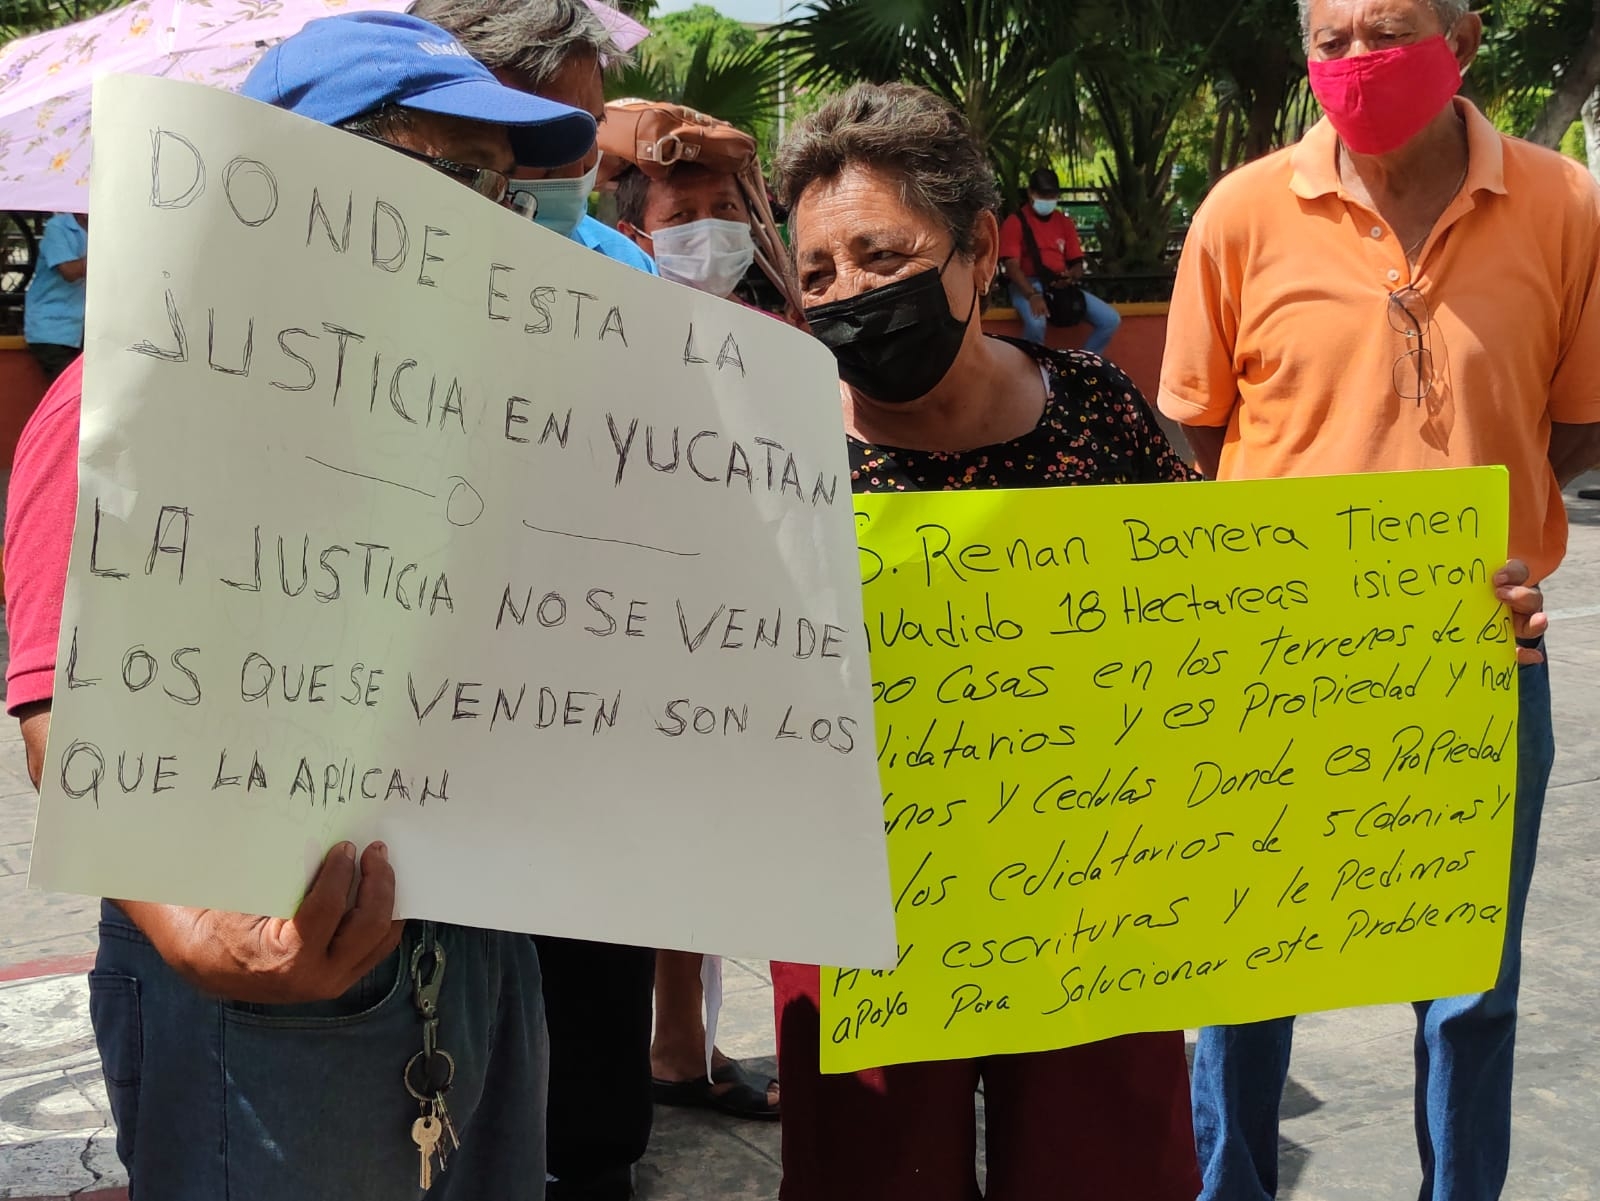 DONDE ESTA LA
JUSTICIA EN YUCATAN
LA JUSTICIA NO SE VENDE
LOS QUE SE VENDEN SON LOS
QUE LA APLICAN
S. Renan Barrera Tienen
vadido 18 Hectareas isieron
00 Casas en los terrenos de los
idatarios y es Propiedad y hay
nos y Cedulas Donde es Propiedad
los edidatarios de 5 Colonias y
Hay escrituras y le Pedimos
apoyo Para Solucionar este Problema